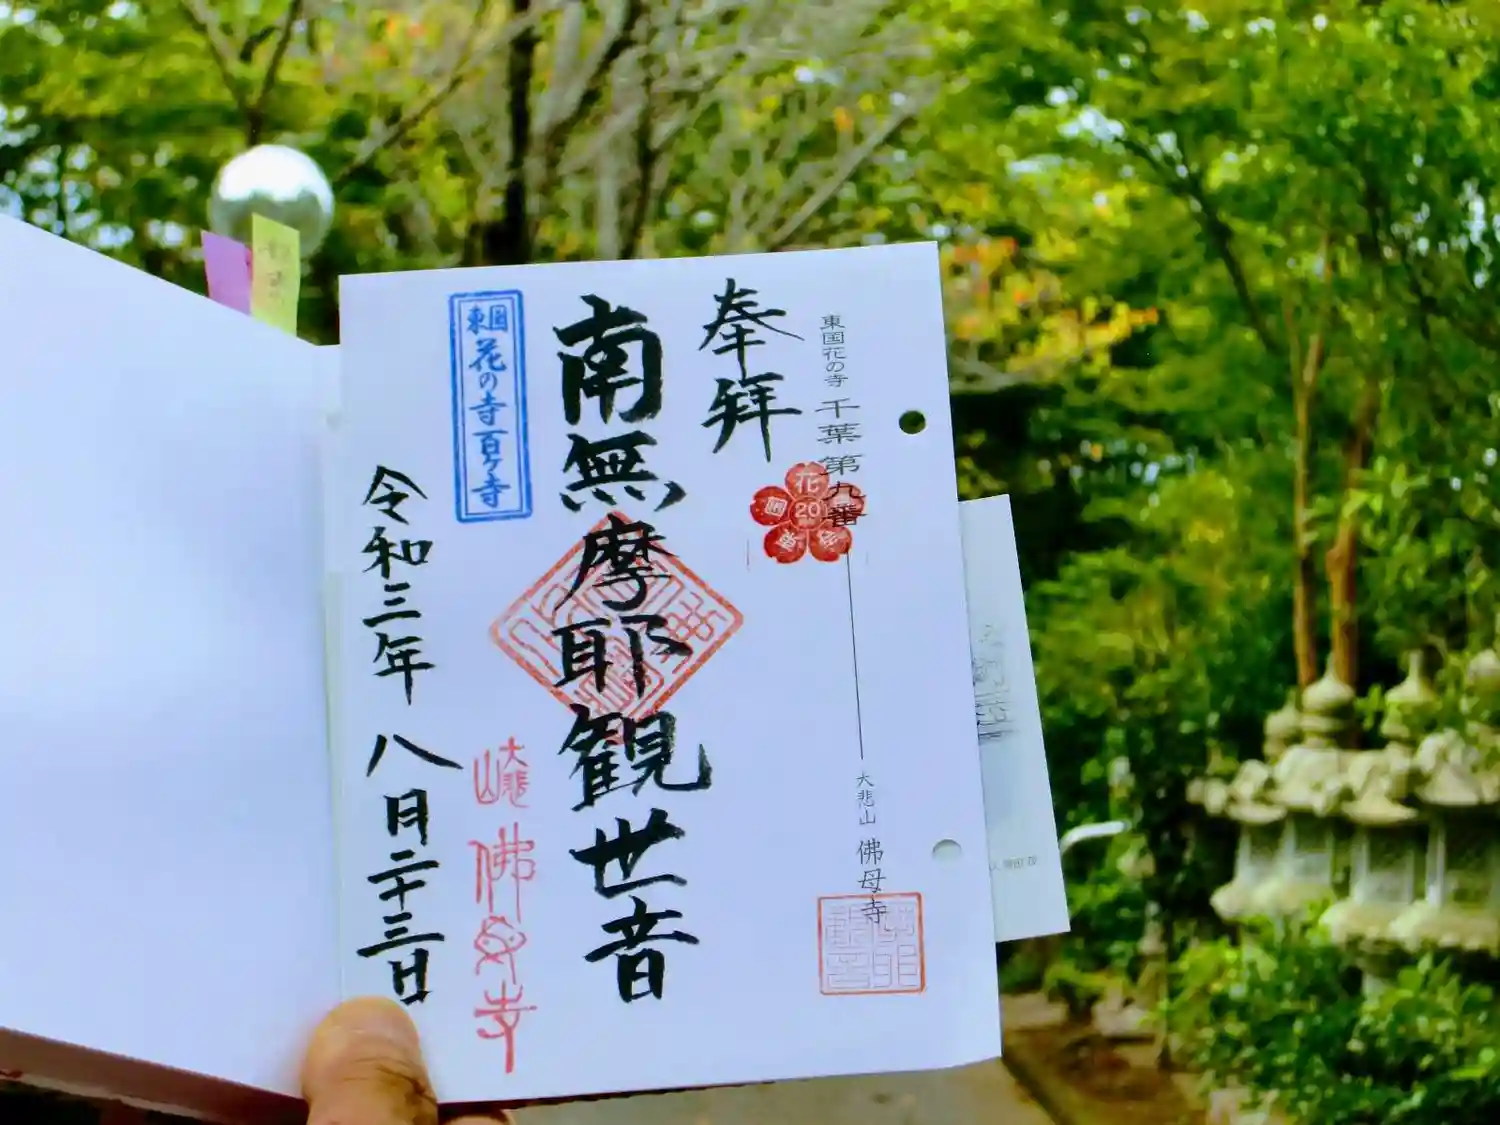 東国花の寺 千葉第九番
大悲山 佛母寺
奉拝
花
20
国
東
南無摩耶観世音
東国
花の寺百ヶ寺
大悲山
佛母寺
令和三年 八月二十三日